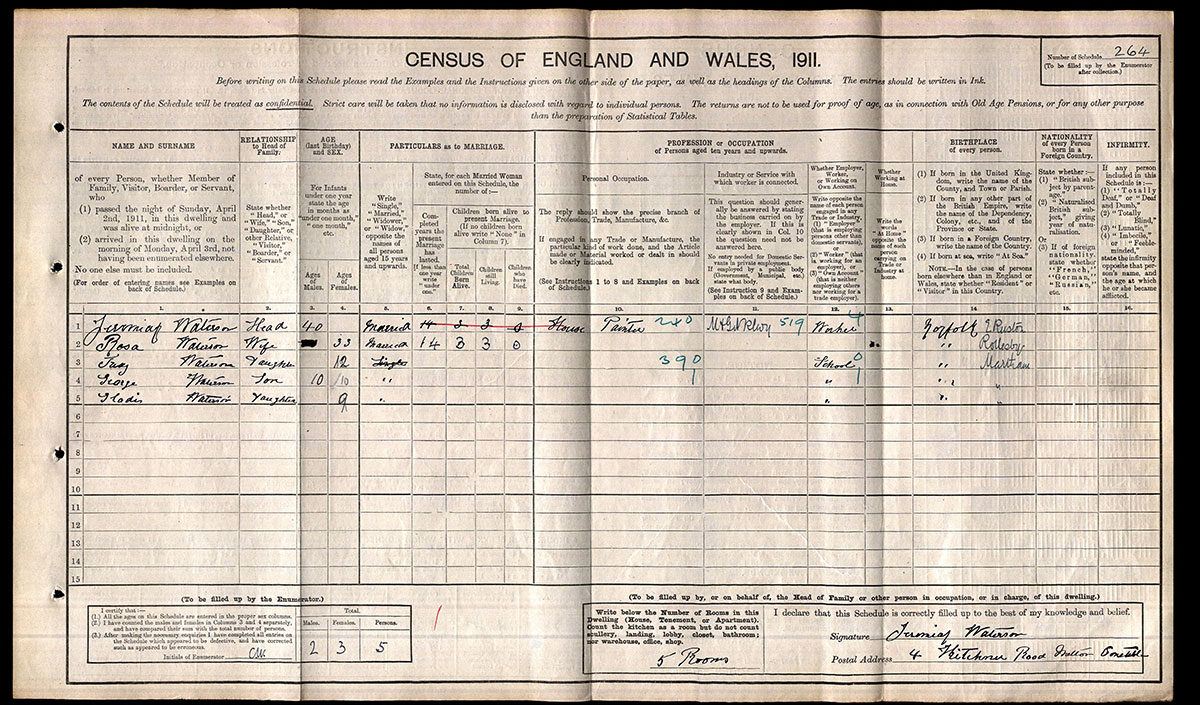 CENSUS OF ENGLAND AND WALES, 1911.
Number of Schedule 264
(To be filled up by the Enumerator
after collection.)
Before writing on this Schedule please read the Examples and the Instructions given on the other side of the paper, as well as the headings of the Columns. The entries should be written in Ink.
The contents of the Schedule will be treated as confidential. Strict care will be taken that no information is disclosed with regard to individual persons. The returns are not to be used for proof of age, as in connection with Old Age Pensions, or for any other purpose
than the preparation of Statistical Tables.
NAME AND SURNAME
of every Person, whether Member of
Family, Visitor, Boarder, or Servant,
who
(1) passed the night of Sunday, April
2nd, 1911, in this dwelling and
was alive at midnight, or
(2) arrived in this dwelling on the
morning of Monday, April 3rd, not
having been enumerated elsewhere.
No one else must be included.
(For order of entering names see Examples on
back of Schedule.)
RELATIONSHIP
to Head of
Family.
State whether
"Head," or
"Wife," "Son,"
"Daughter," or
other Relative,
"Visitor,"
"Boarder," or
"Servant."
AGE
(last Birthday)
and SEX.
For Infants
under one year
state the age
in months as
"under one month,"
"one month,"
etc.
Ages
of
Males.
Ages
of
Females.
PARTICULARS as to MARRIAGE.
Write
"Single,"
"Married,"
"Widower,"
or "Widow,"
opposite the
names of
all persons
aged 15 years
and upwards.
State, for each Married Woman
entered on this Schedule, the
number of :—
Completed
years the
present
Marriage
has
lasted.
If less than
one year
write
"under
one."
Children born alive to
present Marriage.
(If no children born
alive write "None" in
Column 7).
Total
Children
Born
Alive.
Children
still
Living.
Children
who
have
Died.
PROFESSION or OCCUPATION
of Persons aged ten years and upwards.
Personal Occupation.
The reply should show the precise branch of
Profession, Trade, Manufacture, &c.
If engaged in any Trade or Manufacture, the
particular kind of work done, and the Article
made or Material worked or dealt in should
be clearly indicated.
(See Instructions 1 to 8 and Examples on back
of Schedule.)
Industry or Service with
which worker is connected.
This question should generally
be answered by stating
the business carried on by
the employer. If this is
clearly shown in Col. 10
the question need not be
answered here.
No entry needed for Domestic Servants
in private employment.
If employed by a public body
(Government, Municipal, etc.)
state what body.
(See Instruction 9 and Examples
on back of Schedule.)
Whether Employer,
Worker,
or Working on
Own Account.
Write opposite the
name of each person
engaged in any
Trade or Industry,
(1) "Employer"
(that is employing
persons other than
domestic servants),
or
(2) "Worker" (that
is working for an
employer), or
(3) "Own Account"
(that is neither
employing others
nor working for a
trade employer).
Whether
Working at
Home.
Write the
words
"At Home"
opposite the
name of
each person
carrying on
Trade or
Industry at
home.
BIRTHPLACE
of every person.
(1) If born in the United Kingdom,
write the name of the
County, and Town or Parish.
(2) If born in any other part of
the British Empire, write
the name of the Dependency,
Colony, etc., and of the
Province or State.
(3) If born in a Foreign Country,
write the name of the Country.
(4) If born at sea, write "At Sea."
NOTE.—In the case of persons
born elsewhere than in England or
Wales, state whether "Resident" or
"Visitor" in this Country.
NATIONALITY
of every Person
born in a
Foreign Country.
State whether :—
(1) "British subject
by parentage,"
(2) "Naturalised
British subject,"
giving
year of naturalisation.
Or
(3) If of foreign
nationality,
state whether
"French,"
"German,"
"Russian,"
etc.
INFIRMITY.
If any person
included in this
Schedule is :—
(1) "Totally
Deaf," or "Deaf
and Dumb,"
(2) "Totally
Blind,"
(3) "Lunatic,"
(4) "Imbecile,"
or "Feeble-minded,"
state the infirmity
opposite that person's
name, and
the age at which
he or she became
afflicted.
1. 2. 3. 4. 5. 6. 7. 8. 9. 10. 11. 12. 13. 14. 15. 16.
1 Jeremiah Waterson Head 40 Married 14 3 3 0 House Painter 240 M&GNRlwy 519 Worker 4 Norfolk E Ruston
2 Rosa Waterson Wife 33 Married 14 3 3 0 " Rollesby
3 Waterson Daughter 12 Single 390 School 0 " Martham
4 George Waterson Son 10 /10 " 1 " 1 " "
5 Gladis Waterson Daughter 9 " " " "
6
7
8
9
10
11
12
13
14
15
(To be filled up by the Enumerator.)
I certify that :—
(1.) All the ages on this Schedule are entered in the proper sex columns.
(2.) I have counted the males and females in Columns 3 and 4 separately,
and have compared their sum with the total number of persons.
(3.) After making the necessary enquiries I have completed all entries on
the Schedule which appeared to be defective, and have corrected
such as appeared to be erroneous.
Initials of Enumerator
Total.
Males. Females. Persons.
2 3 5
(To be filled up by, or on behalf of, the Head of Family or other person in occupation, or in charge, of this dwelling.)
Write below the Number of Rooms in this
Dwelling (House, Tenement, or Apartment).
Count the kitchen as a room but do not count
scullery, landing, lobby, closet, bathroom;
nor warehouse, office, shop.
5 Rooms
I declare that this Schedule is correctly filled up to the best of my knowledge and belief.
Signature Jeremiah Waterson
Postal Address 4 Kitchener Road Melton Constable